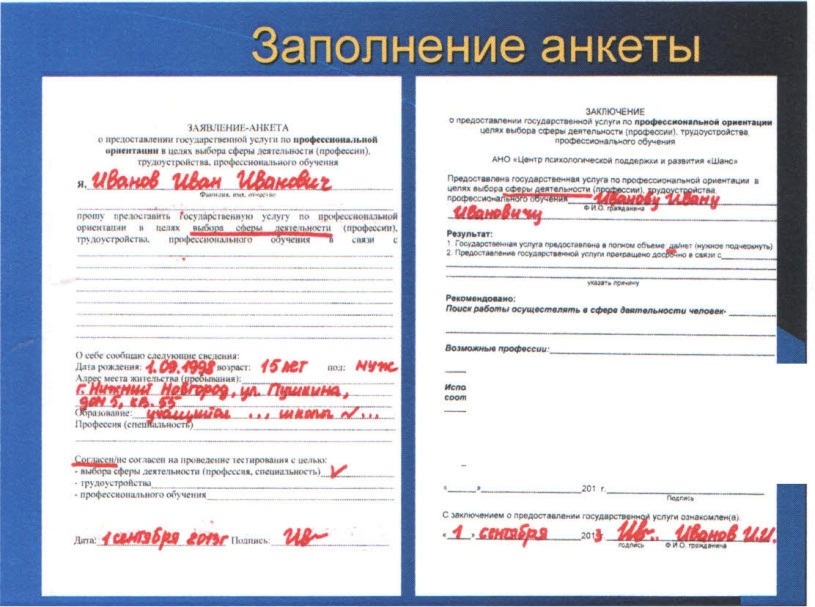 Заполнение анкеты
ЗАЯВЛЕНИЕ-АНКЕТА
о предоставлении государственной услуги по профессиональной
ориентации в целях выбора сферы деятельности (профессии),
трудоустройства, профессионального обучения
Я, Иванов Иван Иванович
Фамилия, имя, отчество
прошу предоставить государственную услугу по профессиональной
ориентации в целях выбора сферы деятельности (профессии),
трудоустройства, профессионального обучения в связи с
О себе сообщаю следующие сведения:
Дата рождения: 1.09.1998 возраст: 15 лет пол: муж
Адрес места жительства (пребывания):
г. Нижний Новгород, ул. Пушкина,
дом 5, кв. 55
Образование: учащийся ... школы №...
Профессия (специальность)
Согласен/не согласен на проведение тестирования с целью:
- выбора сферы деятельности (профессия, специальность)
- трудоустройства
- профессионального обучения
Дата: 1 сентября 2013г Подпись: Ив
ЗАКЛЮЧЕНИЕ
о предоставлении государственной услуги по профессиональной ориентации
целях выбора сферы деятельности (профессии), трудоустройства,
профессионального обучения
АНО «Центр психологической поддержки и развития «Шанс»
Предоставлена государственная услуга по профессиональной ориентации в
целях выбора сферы деятельности (профессии), трудоустройства,
профессионального обучения Иванову Ивану
Ивановичу
Ф.И.О. гражданина
Результат:
1. Государственная услуга предоставлена в полном объеме: да/нет (нужное подчеркнуть)
2. Предоставление государственной услуги прекращено досрочно в связи с
указать причину
Рекомендовано:
Поиск работы осуществлять в сфере деятельности человек-
Возможные профессии:
Испо
соот
« » 201 г.
Подпись
С заключением о предоставлении государственной услуги ознакомлен(а):
« 1 » сентября 2013 Ив.. Иванов И.И.
подпись Ф.И.О. гражданина